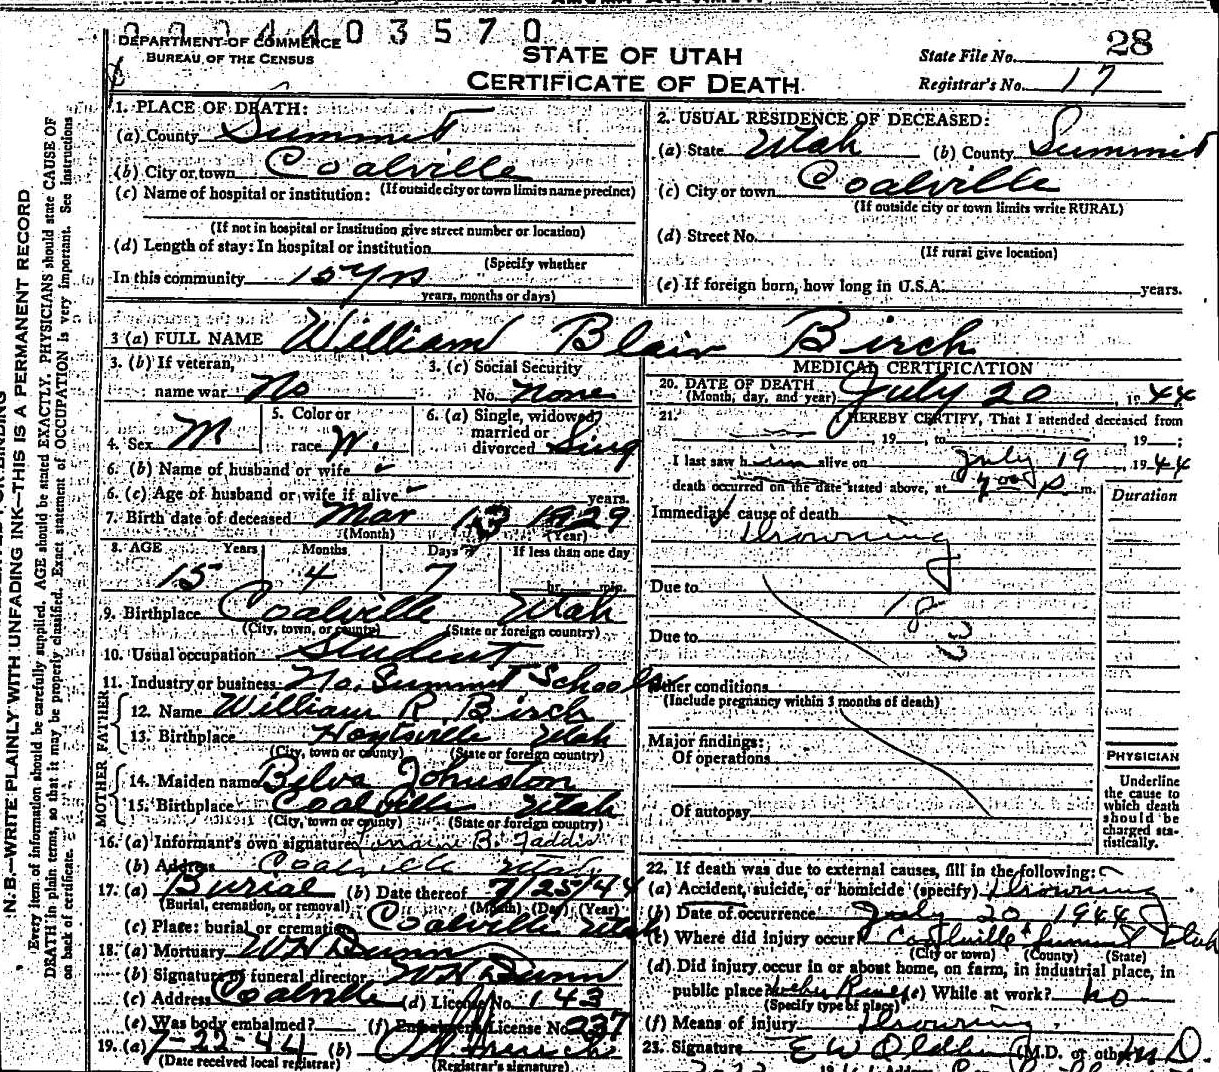 0004403570
DEPARTMENT OF COMMERCE
BUREAU OF THE CENSUS
STATE OF UTAH
CERTIFICATE OF DEATH
State File No. 28
Registrar's No. 17
N. B.—WRITE PLAINLY WITH UNFADING INK—THIS IS A PERMANENT RECORD
Every item of information should be carefully supplied. AGE should be stated EXACTLY. PHYSICIANS should state CAUSE OF
DEATH in plain terms, so that it may be properly classified. Exact statement of OCCUPATION is very important. See instructions
on back of certificate.
1. PLACE OF DEATH:
(a) County Summit
(b) City or town Coalville
(If outside city or town limits name precinct)
(c) Name of hospital or institution:
(If not in hospital or institution give street number or location)
(d) Length of stay: In hospital or institution
(Specify whether
In this community 15 Yrs
years, months or days)
2. USUAL RESIDENCE OF DECEASED:
(a) State Utah (b) County Summit
(c) City or town Coalville
(If outside city or town limits write RURAL)
(d) Street No.
(If rural give location)
(e) If foreign born, how long in U.S.A. years.
3 (a) FULL NAME William Blair Birch
3. (b) If veteran,
name war No
3. (c) Social Security
No. None
4. Sex M
5. Color or
race W.
6. (a) Single, widowed
married or
divorced Sing
6. (b) Name of husband or wife
6. (c) Age of husband or wife if alive years.
7. Birth date of deceased Mar 13 1929
(Month) (Year)
8. AGE Years Months Days If less than one day
15 4 7 hr. min.
9. Birthplace Coalville Utah
(City, town, or county) (State or foreign country)
10. Usual occupation Student
11. Industry or business No. Summit Schools
FATHER
12. Name William R. Birch
13. Birthplace Hontsville Utah
(City, town or county) (State or foreign country)
MOTHER
14. Maiden name Belva Johnston
15. Birthplace Coalville Utah
(City, town or county) (State or foreign country)
16. (a) Informant's own signature Lorraine B. Faddis
(b) Address Coalville Utah
17. (a) Burial (b) Date thereof 7/25/44
(Burial, cremation, or removal) (Month) (Day) (Year)
(c) Place: burial or cremation Coalville Utah
18. (a) Mortuary W H Dunn
(b) Signature of funeral director W H Dunn
(c) Address Coalville (d) License No. 143
(e) Was body embalmed? (f) Embalmer's License No. 237
19. (a) 7-22-44 (b)
(Date received local registrar) (Registrar's signature)
MEDICAL CERTIFICATION
20. DATE OF DEATH July 20, 1944
(Month, day, and year)
21. I HEREBY CERTIFY, That I attended deceased from
, 19 , to 19 ;
I last saw him alive on July 19, 1944
death occurred on the date stated above, at 4:00 P. m.
Duration
Immediate cause of death
Drowning
Due to
183
Due to
Other conditions
(Include pregnancy within 3 months of death)
Major findings:
Of operations
Of autopsy
PHYSICIAN
Underline
the cause to
which death
should be
charged sta-
tistically.
22. If death was due to external causes, fill in the following:
(a) Accident, suicide, or homicide (specify) Drowning
(b) Date of occurrence July 20 1944
(c) Where did injury occur? Coalville Summit Utah
(City or town) (County) (State)
(d) Did injury occur in or about home, on farm, in industrial place, in
public place? Weber River (e) While at work? no
(Specify type of place)
(f) Means of injury Drowning
23. Signature E W Oldham (M.D. or other) M.D.